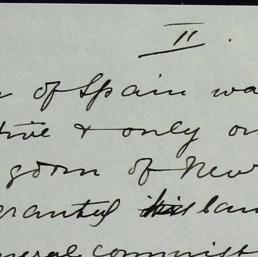 II.
of Spain wa
tive & only on
gdom of New
granted his lan
neral commissi